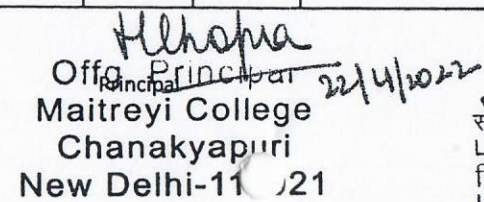 Offg. Principal
Principal
22/4/2022
Maitreyi College
Chanakyapuri
New Delhi-11 021